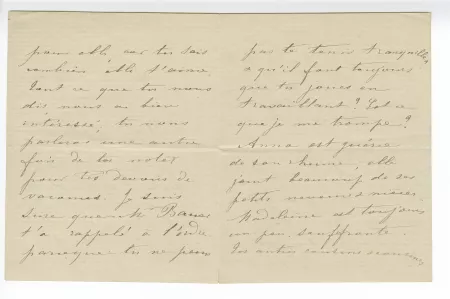 pour elle car tu sais
combien elle t'aime.
Tout ce que tu nous
dis nous a bien
intéressé, tu nous
parleras une autre
fois de tes notes
pour tes devoirs de
vacances. Je suis
sure que M
t'a rappelé à l'ordre
parceque tu ne peux
pas te tenir tranquille,
qu'il faut toujours
que tu joues en
travaillant? Est ce
que je me trompe?
Anna est guérie
de son rhume, elle
jouit beaucoup de ses
petits
Madeleine est toujours
un peu souffrante.
Les autres cousins